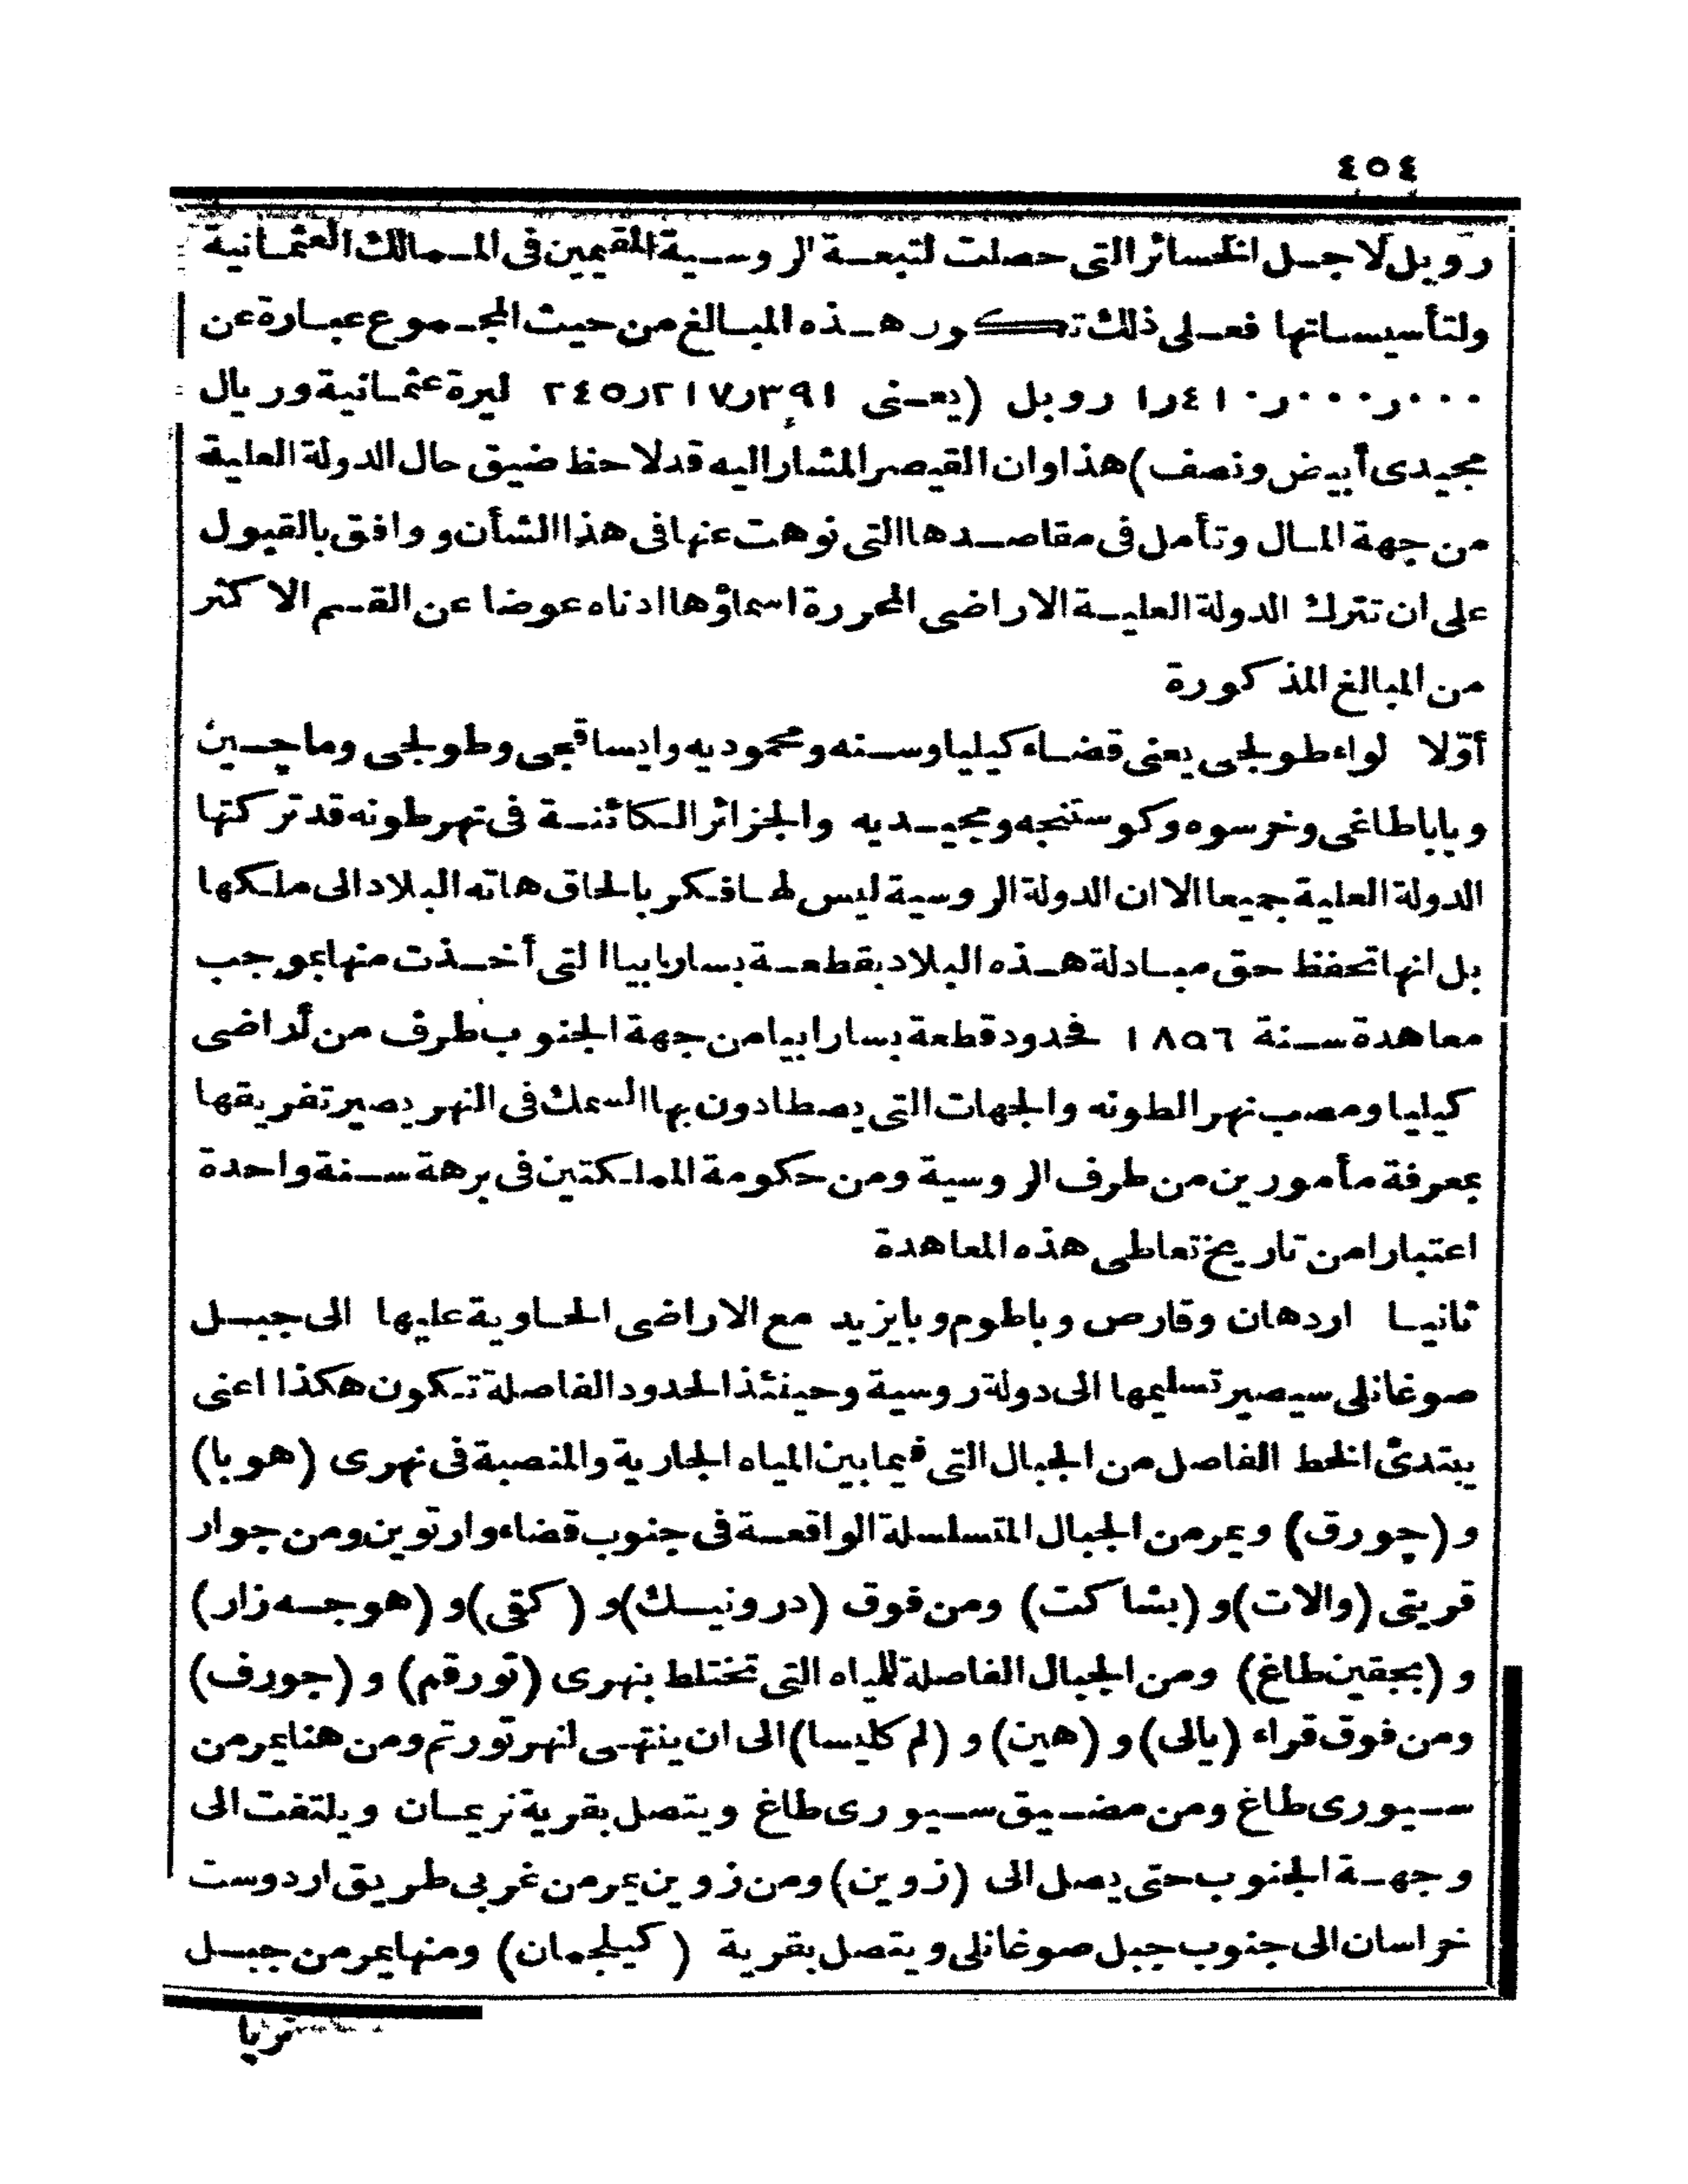 ٤٥٤
روبل لاجل الخسائر التى حصلت لتبعة الروسية المقيمين فى الممالك العثمانية
ولتأسيساتها فعلى ذلك تكون هذه المبالغ من حيث المجموع عبارة عن
١٤١٠ر٠٠٠ر٠٠٠ روبل (يعنى ٢٤٥ر٢١٧ر٣٩١ ليرة عثمانية وريال
مجيدى أبيض ونصف) هذا وان القيصر المشار اليه قد لاحظ ضيق حال الدولة العلية
من جهة المال وتأمل فى مقاصدها التى نوهت عنها فى هذا الشأن و وافق بالقبول
على ان تترك الدولة العلية الاراضى المحررة اسماؤها ادناه عوضا عن القسم الاكثر
من المبالغ المذكورة
أوّلا لواء طولجى يعنى قضاء كيليا وسنه ومحموديه وايساقجى وطولجى وماچين
وباباطاغى وخرسوه وكوستنجه ومجيديه والجزائر الكائنة فى نهر طونه قد تركتها
الدولة العلية جميعا الا ان الدولة الروسية ليس لها فكر بالحاق هاته البلاد الى ملكها
بل انها تحفظ حق مبادلة هذه البلاد بقطعة بسارابيا التى أخذت منها بموجب
معاهدة سنة ١٨٥٦ فحدود قطعة بسارابيا من جهة الجنوب طرف من أراضى
كيليا ومصب نهر الطونه والجهات التى يصطادون بها السمك فى النهر يصير تفريقها
بمعرفة مأمورين من طرف الروسية ومن حكومة المملكتين فى برهة سنة واحدة
اعتبارا من تاريخ تعاطى هذه المعاهدة
ثانيا اردهان وقارص وباطوم وبايزيد مع الاراضى الحاوية عليها الى جبل
صوغانلى سيصير تسليمها الى دولة روسية وحينئذ الحدود الفاصلة تكون هكذا اعنى
يبتدئ الخط الفاصل من الجبال التى فيما بين المياه الجارية والمنصبة فى نهرى (هوبا)
و (چورق) ويمر من الجبال المتسلسلة الواقعة فى جنوب قضاء وارتوين ومن جوار
قريتى (والات) و (بشاكت) ومن فوق (درونيك) و (كتقى) و (هوجه زار)
و (بجقين طاغ) ومن الجبال الفاصلة للمياه التى تختلط بنهرى (تورقم) و (جورف)
ومن فوق قراء (يالى) و (هين) و (لم كليسا) الى ان ينتهى لنهر تورتم ومن هنا يمر من
سيورى طاغ ومن مضيق سيورى طاغ ويتصل بقرية نريمان ويلتفت الى
وجهة الجنوب حتى يصل الى (زوين) ومن زوين يمر من غربى طريق اردوست
خراسان الى جنوب جبل صوغانلى ويتصل بقرية (كيلجمان) ومنها يمر من جبل